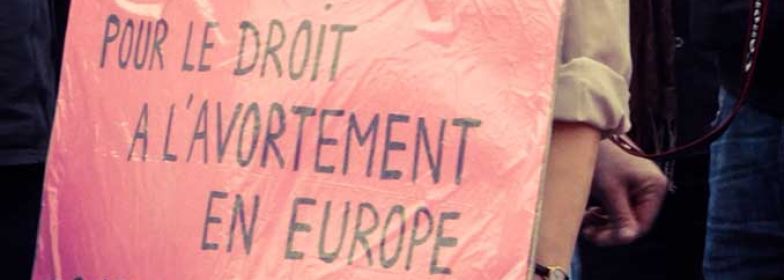 POUR LE DROIT
A L'AVORTEMENT
EN EUROPE